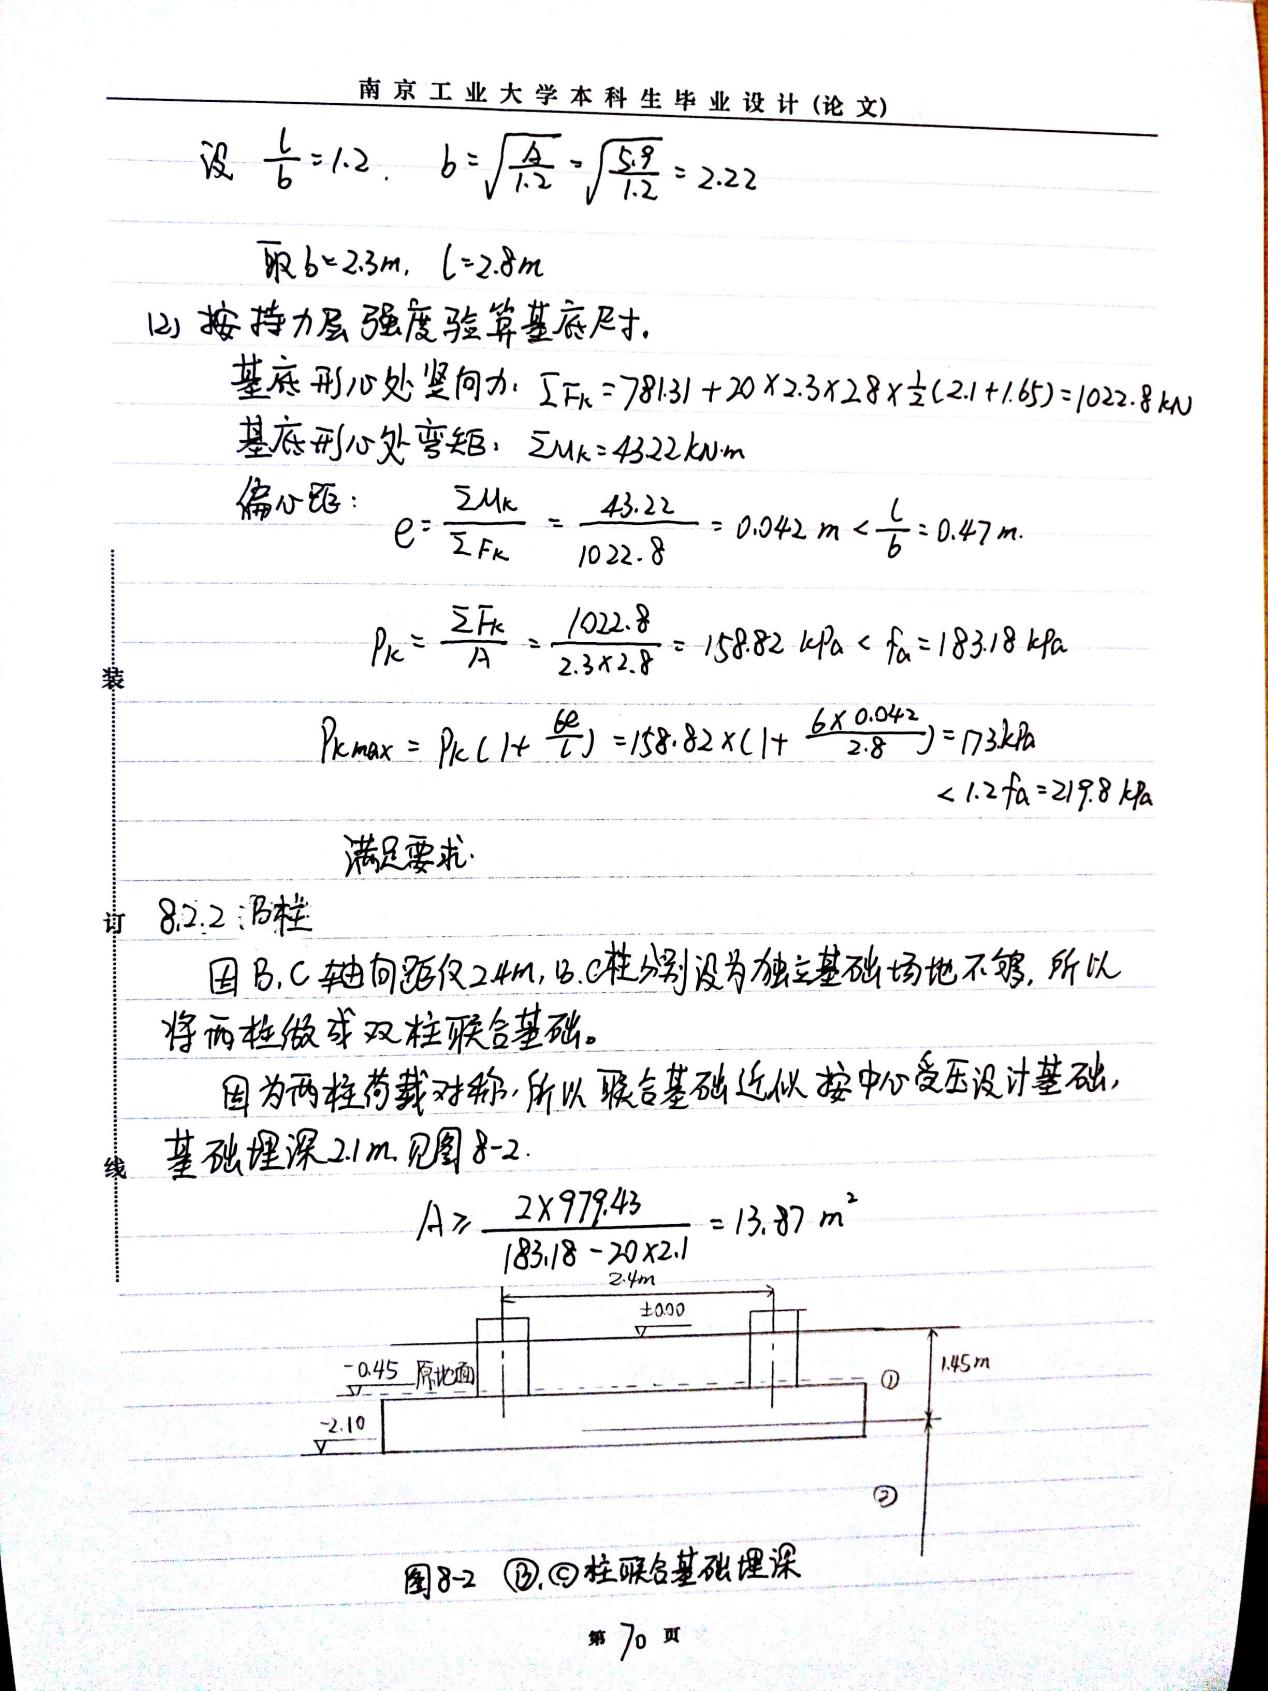 南京工业大学本科生毕业设计(论文)
设 l/b=1.2. b=√(A/1.2)=√(5.9/1.2)=2.22
取b=2.3m, l=2.8m
(2) 按持力层强度验算基底尺寸.
基底形心处竖向力: ΣFk=781.31+20×2.3×2.8×1/2(2.1+1.65)=1022.8kN
基底形心处弯矩: ΣMk=43.22kN·m
偏心距: e=ΣMk/ΣFk=43.22/1022.8=0.042m<l/6=0.47m.
Pk=ΣFk/A=1022.8/(2.3×2.8)=158.82kPa<fa=183.18kPa
Pkmax=Pk(1+6e/l)=158.82×(1+6×0.042/2.8)=173.kPa
<1.2fa=219.8kPa
满足要求.
8.2.2:B柱
因B,C轴间距仅2.4m,B.C柱分别设为独立基础场地不够,所以
将两柱做成双柱联合基础。
因为两柱荷载对称,所以联合基础近似按中心受压设计基础,
基础埋深2.1m.见图8-2.
A≥2×979.43/(183.18-20×2.1)=13.87m²
2.4m
±0.00
1.45m
-0.45 原地面
①
-2.10
②
图8-2 Ⓑ.Ⓒ柱联合基础埋深
第70页
装
订
线